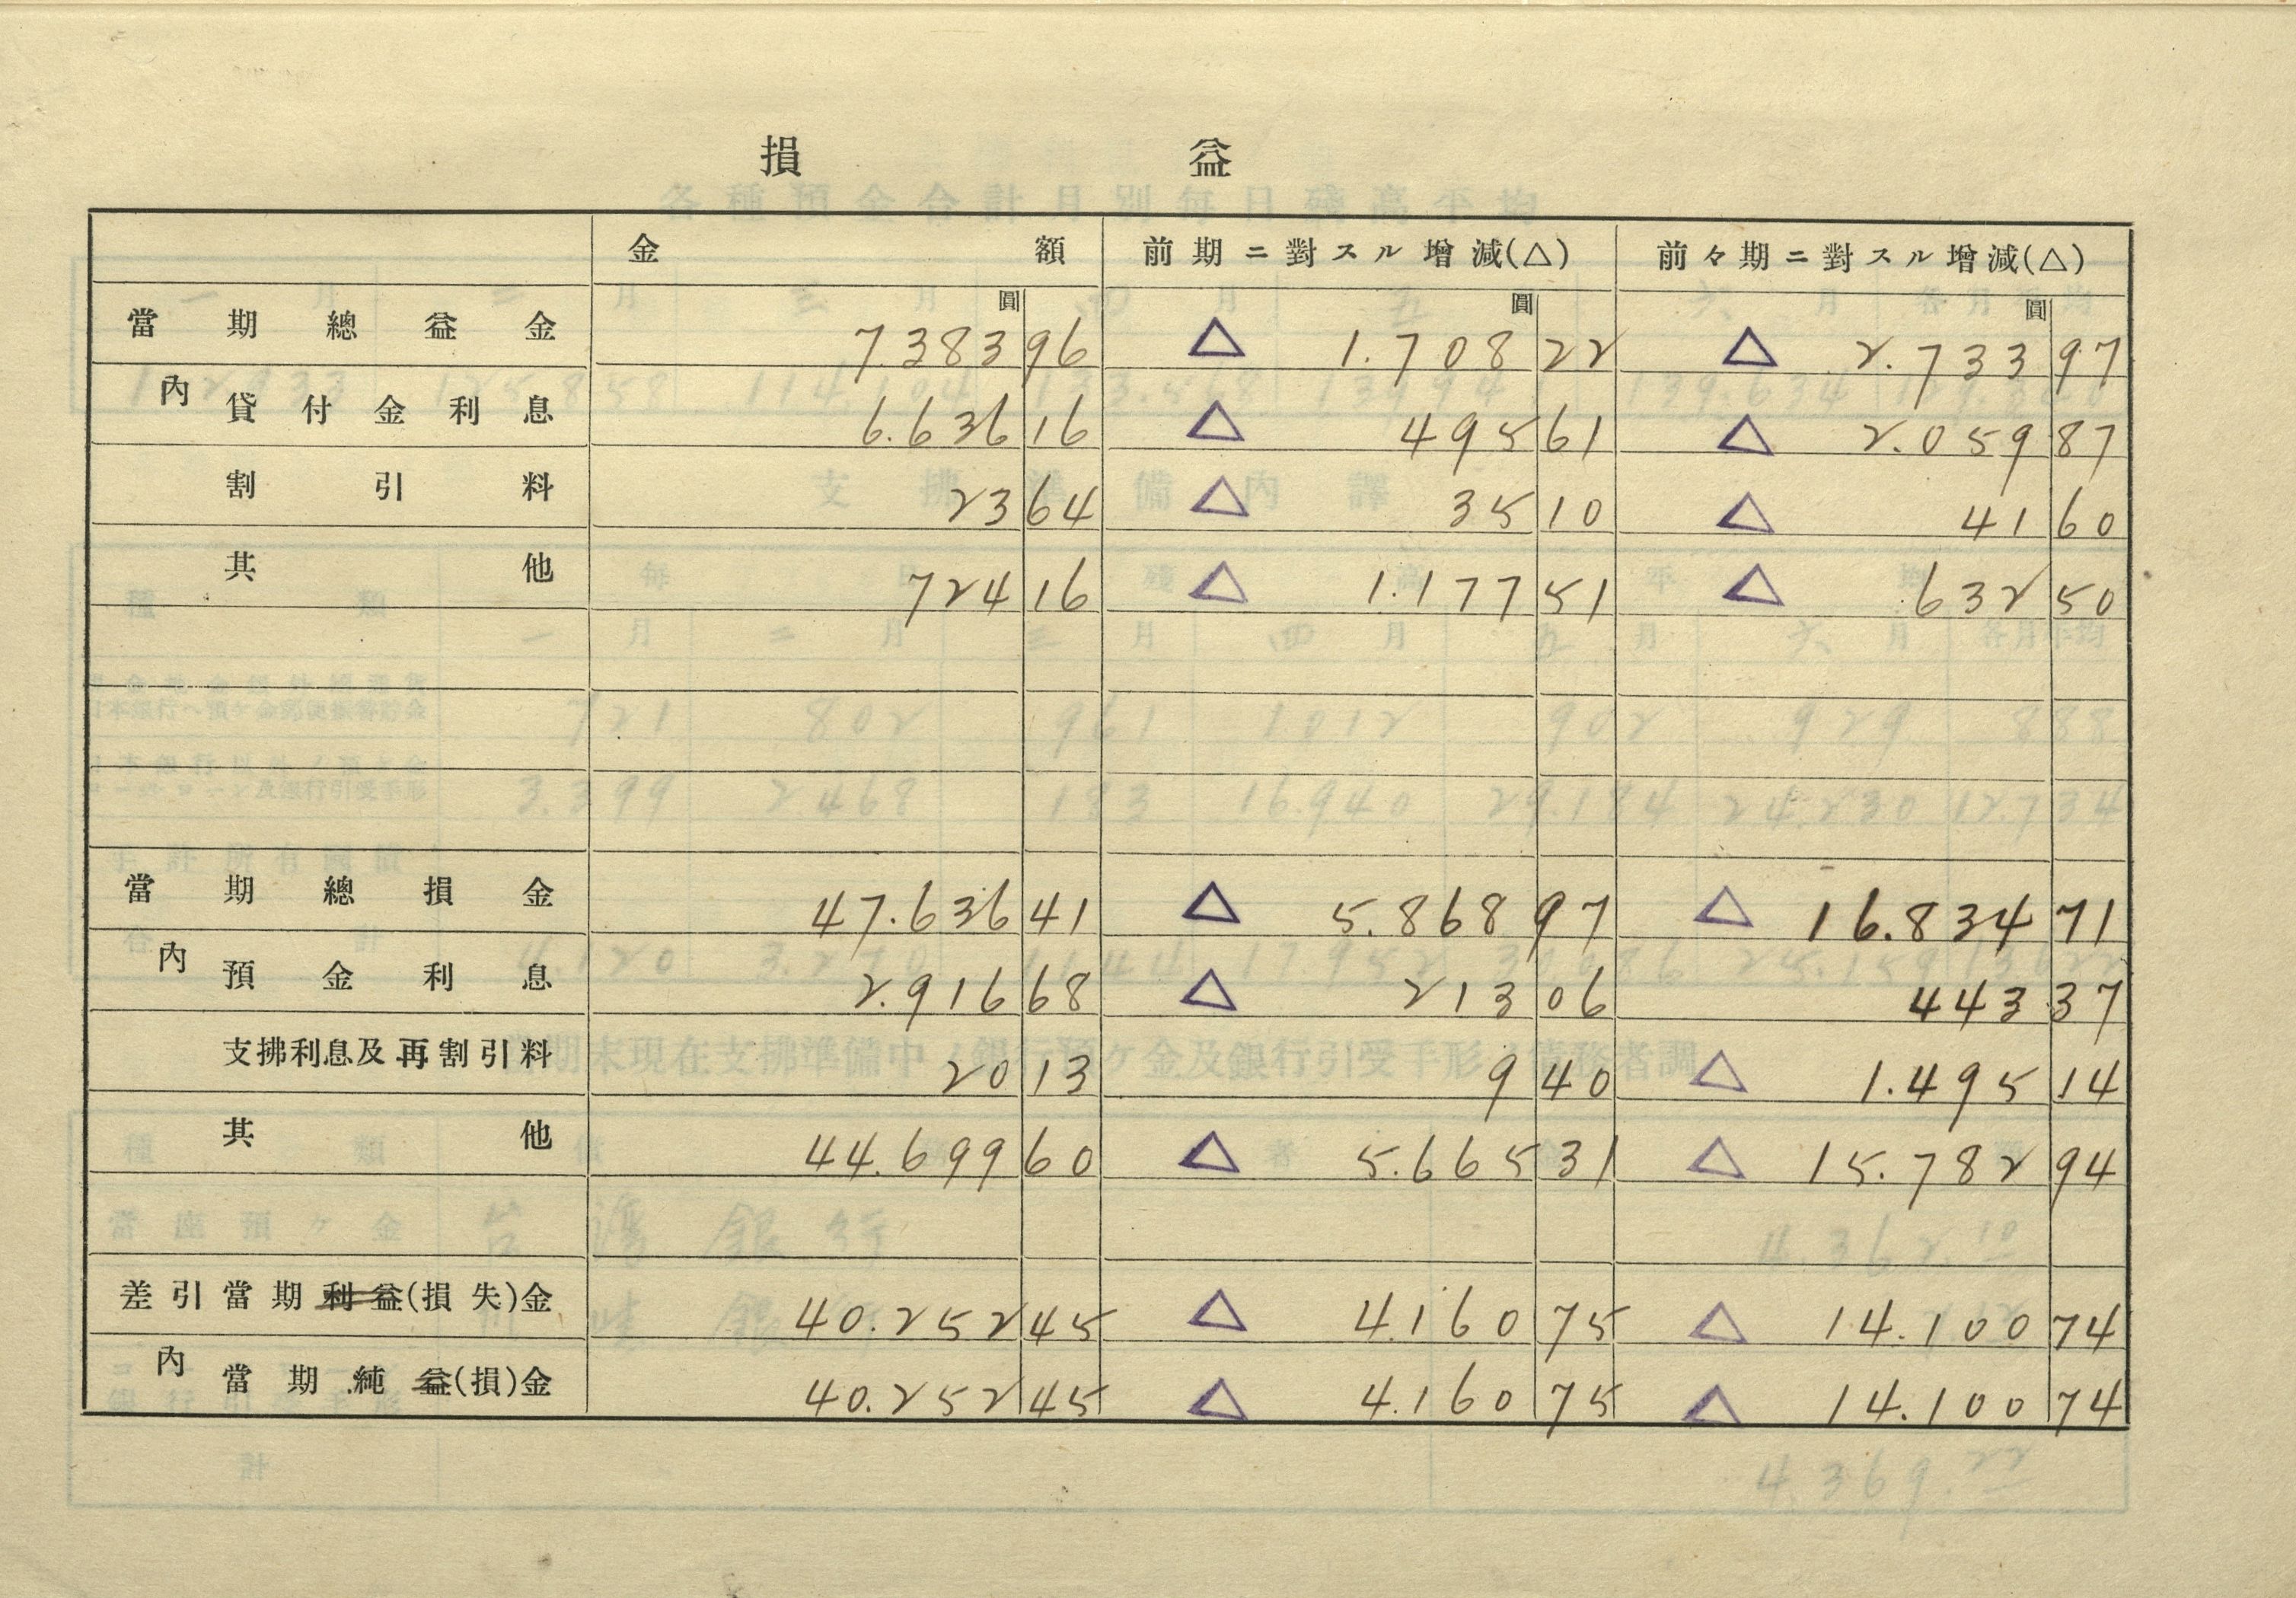 損益
金額 前期ニ對スル增減(△) 前々期ニ對スル增減(△)
圓 圓 圓
當期總益金 7.383 96 △ 1.708 22 △ 2.733 97
內 貸付金利息 6.636 16 △ 495 61 △ 2.059 87
割引料 23 64 △ 35 10 △ 41 60
其他 724 16 △ 1.177 51 △ 632 50
當期總損金 47.636 41 △ 5.868 97 △ 16.834 71
內 預金利息 2.916 68 △ 213 06 443 37
支拂利息及再割引料 20 13 9 40 △ 1.495 14
其他 44.699 60 △ 5.665 31 △ 15.782 94
差引當期利益(損失)金 40.252 45 △ 4.160 75 △ 14.100 74
內 當期純益(損)金 40.252 45 △ 4.160 75 △ 14.100 74